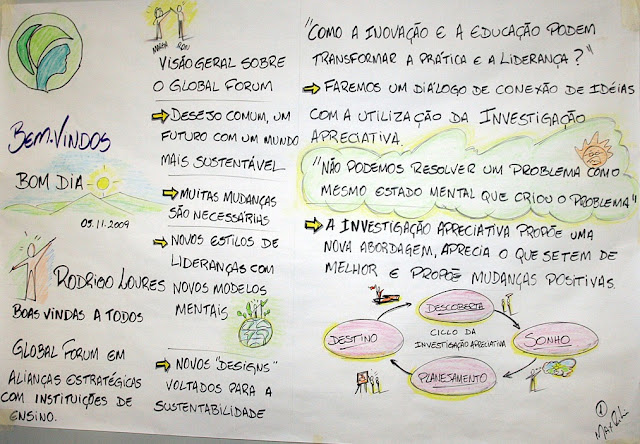 BEM-VINDOS
BOM DIA
05.11.2009
RODRIGO LOURES
BOAS VINDAS A TODOS
GLOBAL FORUM EM
ALIANÇAS ESTRATÉGICAS
COM INSTITUIÇÕES DE
ENSINO.
VISÃO GERAL SOBRE
O GLOBAL FORUM
DESEJO COMUM, UM
FUTURO COM UM MUNDO
MAIS SUSTENTÁVEL
MUITAS MUDANÇAS
SÃO NECESSÁRIAS
NOVOS ESTILOS DE
LIDERANÇAS COM
NOVOS MODELOS
MENTAIS
NOVOS "DESIGNS"
VOLTADOS PARA A
SUSTENTABILIDADE
"COMO A INOVAÇÃO E A EDUCAÇÃO PODEM
TRANSFORMAR A PRÁTICA E A LIDERANÇA?"
FAREMOS UM DIÁLOGO DE CONEXÃO DE IDÉIAS
COM A UTILIZAÇÃO DA INVESTIGAÇÃO
APRECIATIVA.
"NÃO PODEMOS RESOLVER UM PROBLEMA COM O
MESMO ESTADO MENTAL QUE CRIOU O PROBLEMA"
A INVESTIGAÇÃO APRECIATIVA PROPÕE UMA
NOVA ABORDAGEM, APRECIA O QUE SE TEM DE
MELHOR E PROPÕE MUDANÇAS POSITIVAS.
DESCOBERTA
DESTINO
CICLO DA
INVESTIGAÇÃO APRECIATIVA
SONHO
PLANEJAMENTO
1